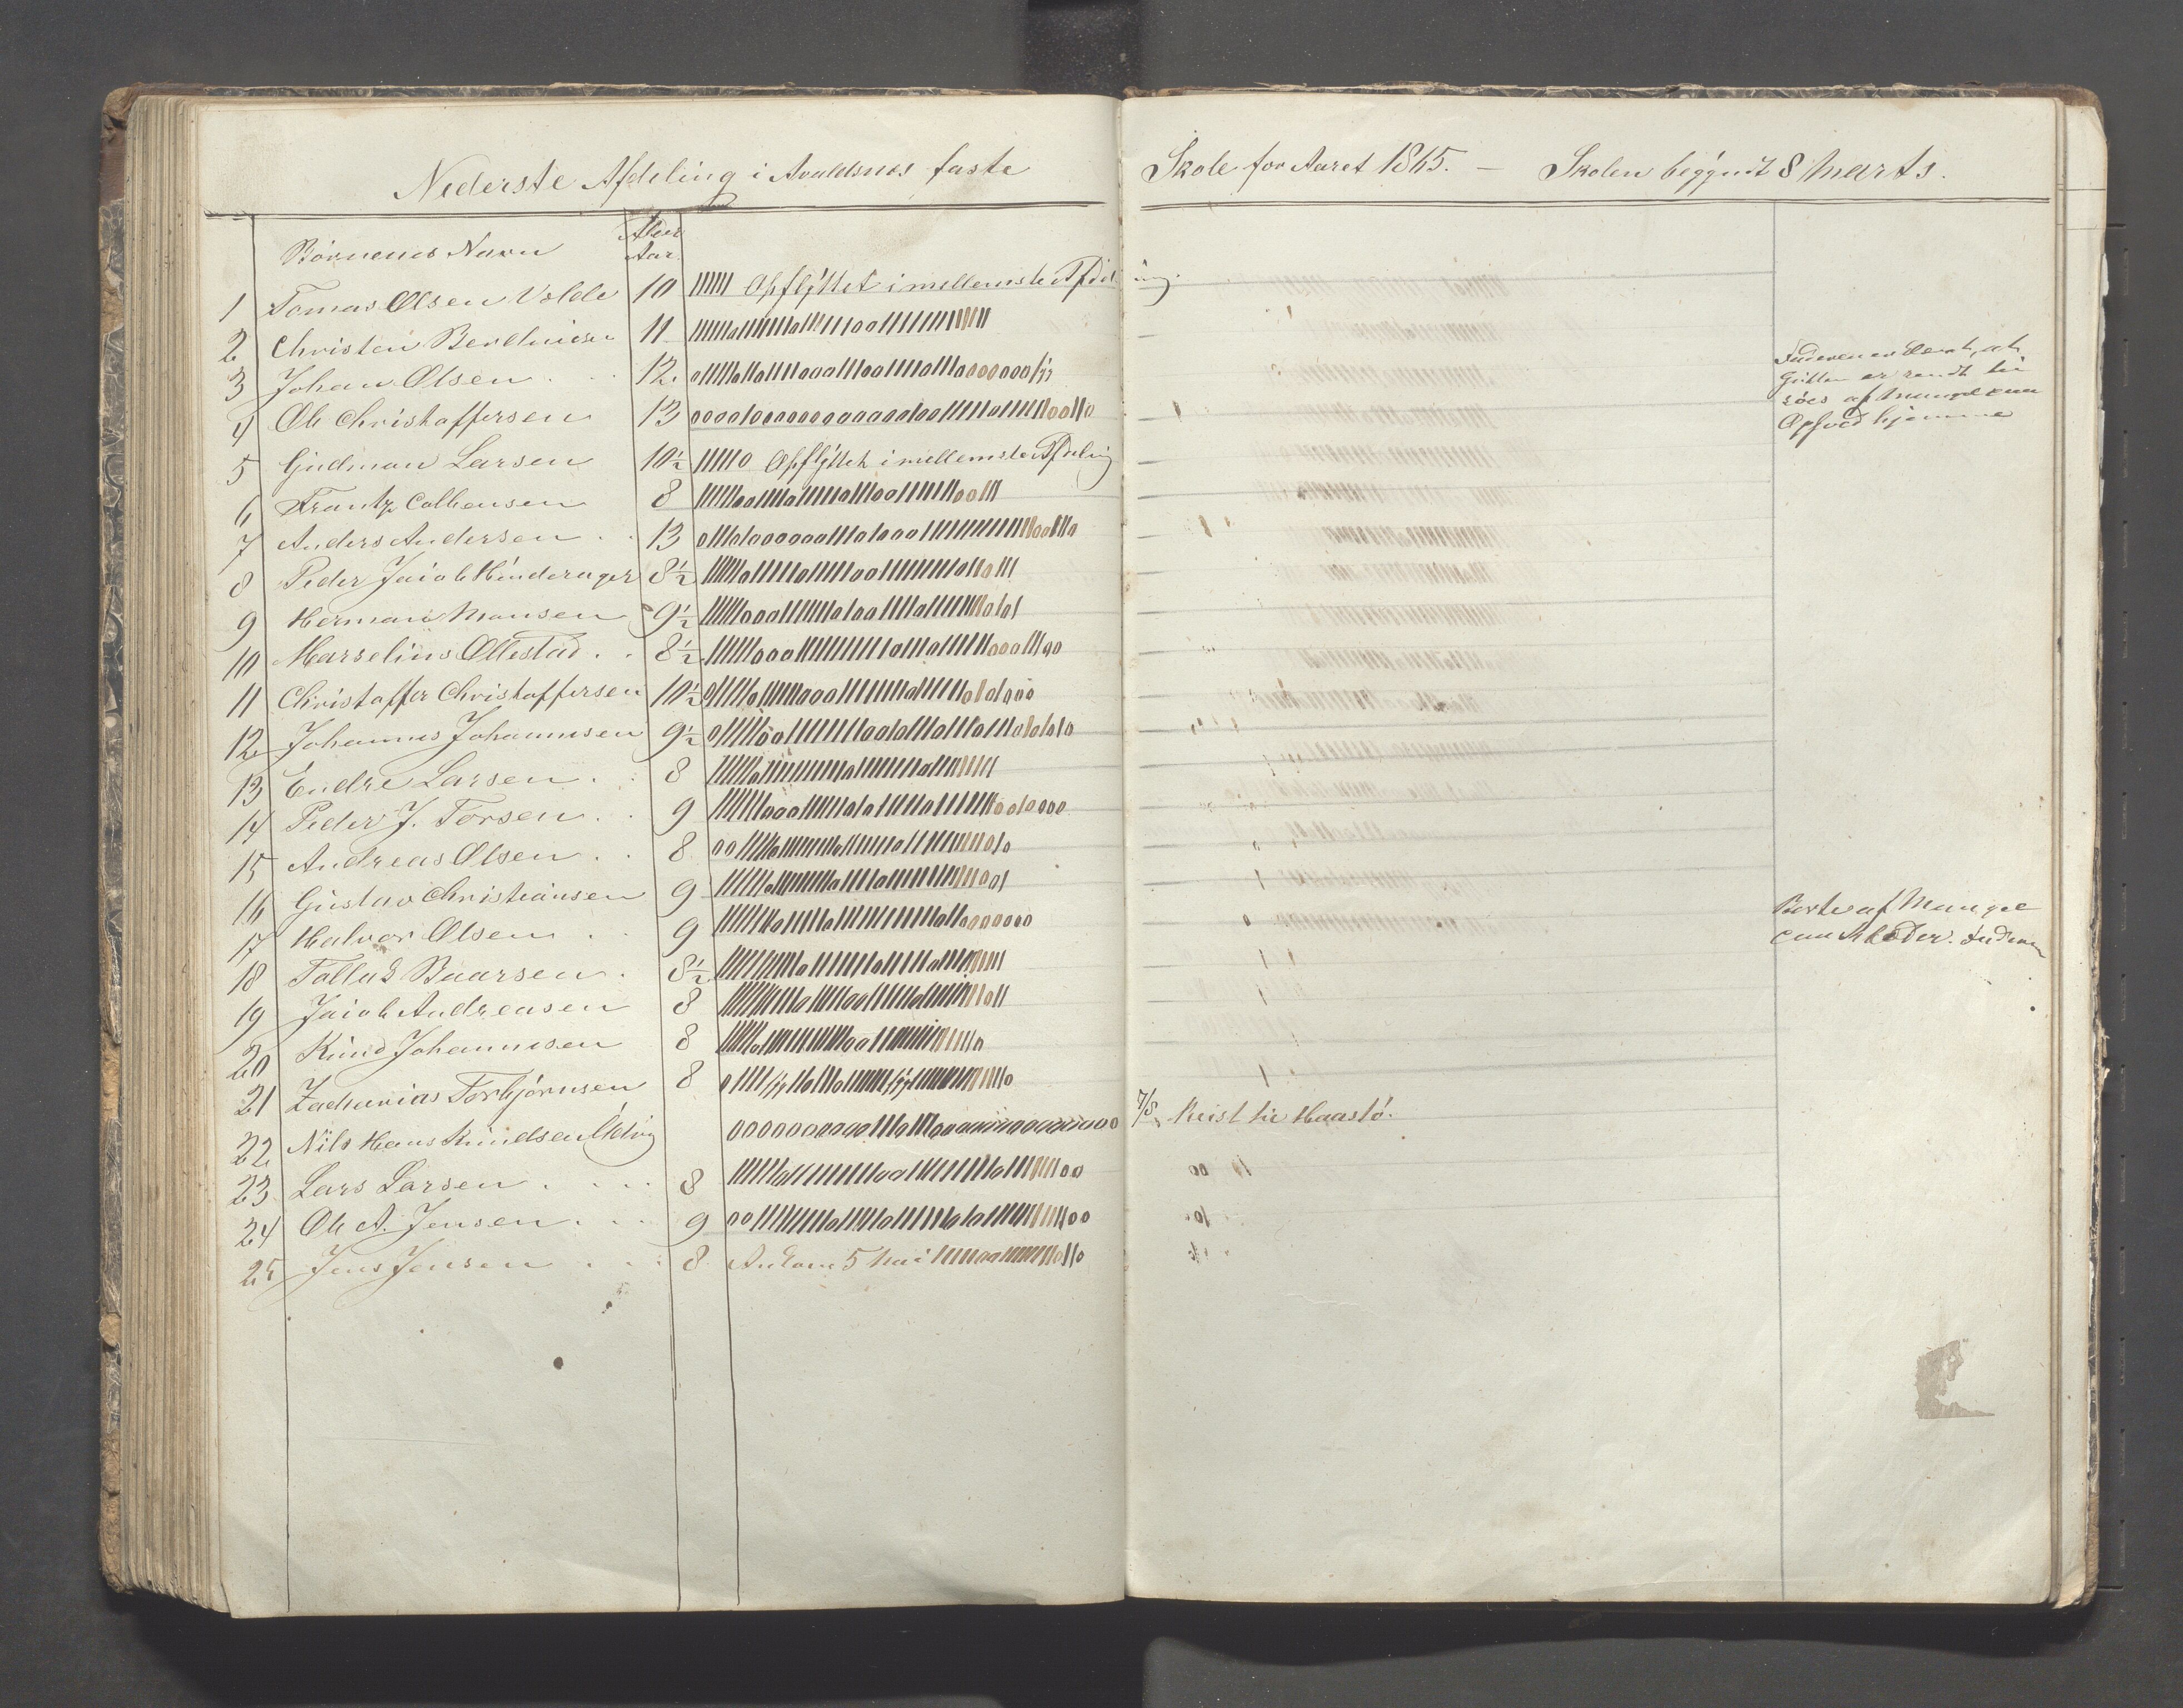 Nederste Afdeling i Avaldsnes faste Skole for Aaret 1865. — Skolen begyndt 8 Marts.
Børnenes Navn Alder Aar.
1 Tomas Olsen Velde 10 Opflyttet i mellemste Afdeling.
2 Christen 11
3 Johan Olsen 12.
4 Ole Christoffersen 13
5 Gudman Larsen 10½ Opflyttet i mellemste Afdeling
6 Frantz 8
7 Anders Andersen 13
8 Peder Jacob Hinderager 8½
9 Herman Monsen 9½
10 Marselius Ollestad 8½
11 Christoffer Christoffersen 10½
12 Johannes Johannesen 9½
13 Endre Larsen 8
14 Peder J. Torsen 9
15 Andreas Olsen 8
16 Gustav Christiansen 9
17 Halvor Olsen 9
18 Tollak Baarsen 8½
19 Jacob Andreasen 8
20 Knud Johannesen 8
21 Zacharias Torbjørnsen 8
22 Nils Hans Knudsen 7/8 Reist til
23 Lars Larsen 8
24 Ole A. Jensen 9
25 Jens Jensen 8 Ankom 5 Mai
at
Gutten er sendt til
søes af Mangel paa
Opfød hjemme
Borte af Mangel
paa Klæder.